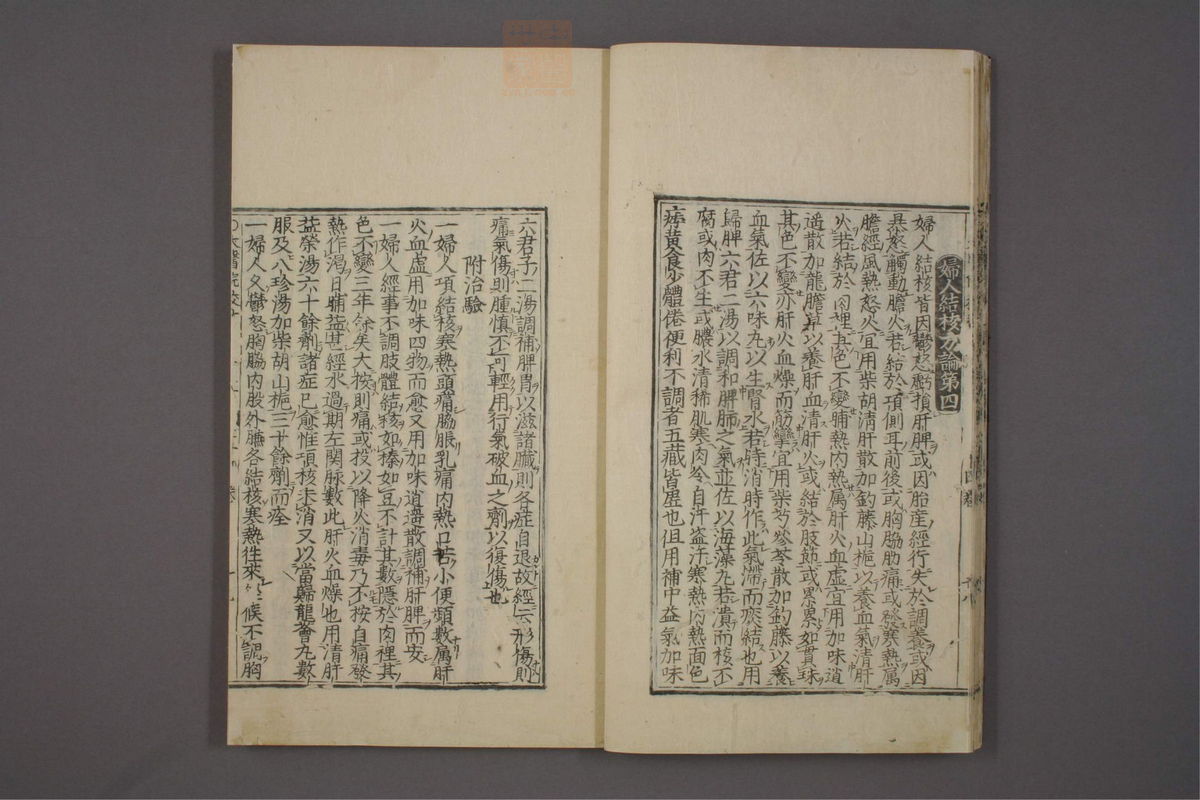 婦人結核方論第四
婦人結核皆因鬱怒虧損肝脾或因胎産經行失於調養或因
暴怒觸動膽火若結於項側耳前後或胸脇肋痛或發寒熱属
膽經風熱怒火宜用柴胡清肝散加釣藤山梔以養血氣清肝
火若結於肉裡其色不變晡熱内熱属肝火血虛宜用加味逍
遥散加龍膽草以養肝血清肝火或結於肢節或累累如貫珠
其色不變亦肝火血燥而筋攣宜用柴芍參苓散加釣藤以養
血氣佐以六味丸以生腎水若時消時作此氣滯而痰結也用
歸脾六君二湯以調和脾肺之氣並佐以海藻丸若潰而核不
腐或肉不生或膿水清稀肌寒肉冷自汗盗汗寒熱内熱面色
痿黄食少體倦便利不調者五藏皆虚也但用補中益氣加味
六君子二湯調補脾胃以滋諸臓則各症自退故經云形傷則
痛氣傷則腫慎不可輕用行氣破血之劑以復傷也
附治驗
一婦人項結核寒熱頭痛脇脹乳痛内熱口苦小便頻數属肝
火血虚用加味四物而愈又用加味逍遥散調補肝脾而安
一婦人經事不調肢體結核如榛如豆不計其數隱於肉裡其
色不變三年餘矣大按則痛或投以降火消毒乃不按自痛發
熱作渇日晡益甚經水過期左関脉數此肝火血燥也用清肝
益榮湯六十餘劑諸症已愈惟項核未消又以當歸龍薈丸數
服及八珍湯加柴胡山梔三十餘劑而痊
一婦人久鬱怒胸脇内股外臁各結核寒熱徃來候不調胸